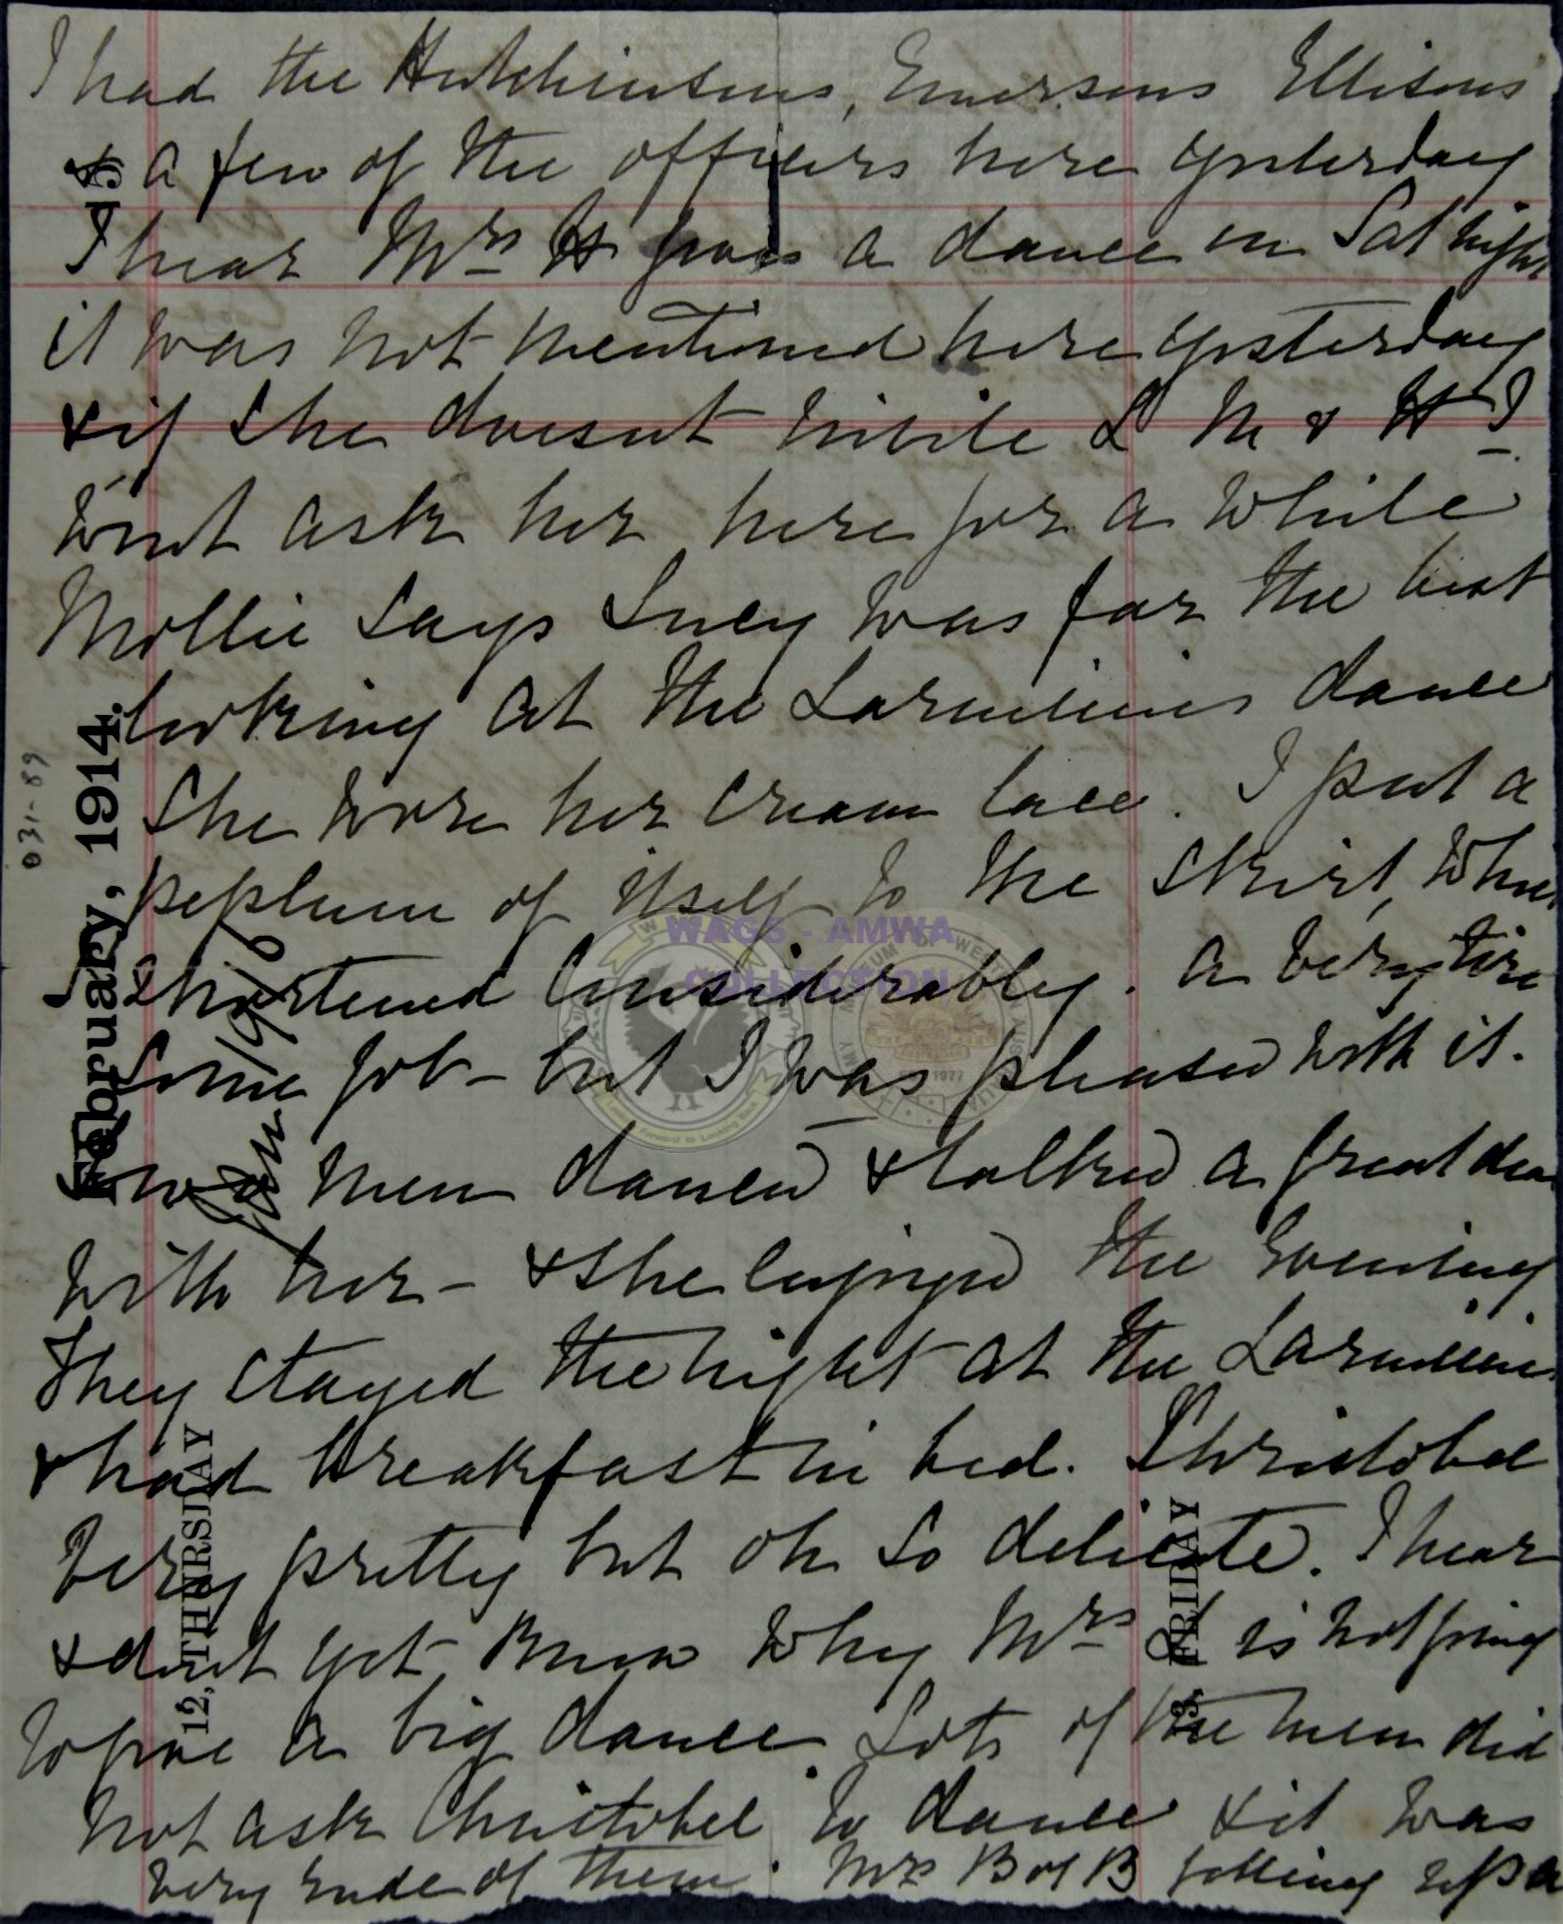 I had the Hutchinsons, Emersons Ellisons
& a few of the officers here yesterday
I hear Mrs H gives a dance on Sat night
it was not mentioned here yesterday
& if she doesnt invite L M & H I
wont ask her here for a while
Mollie says Lucy was far the best
looking at the Larminies dance
She wore her cream lace. I put a
peplum of itself to the skirt, when
shortened considerably. A very tire
some job - but I was pleased with it.
men danced & talked a great deal
with her - & she enjoyed the evening
They stayed the night at the Larminies
& had breakfast in bed. Christobel
very pretty but oh so delicate. I hear
& dont yet know why Mrs L is not going
to give a big dance. Lots of the men did
not ask Christobel to dance & it was
very rude of them. Mrs B of B getting up a
15
February, 1914.
Jan 1916
031-89
12, THURSDAY
13, FRIDAY
WAGS - AMWA
COLLECTION